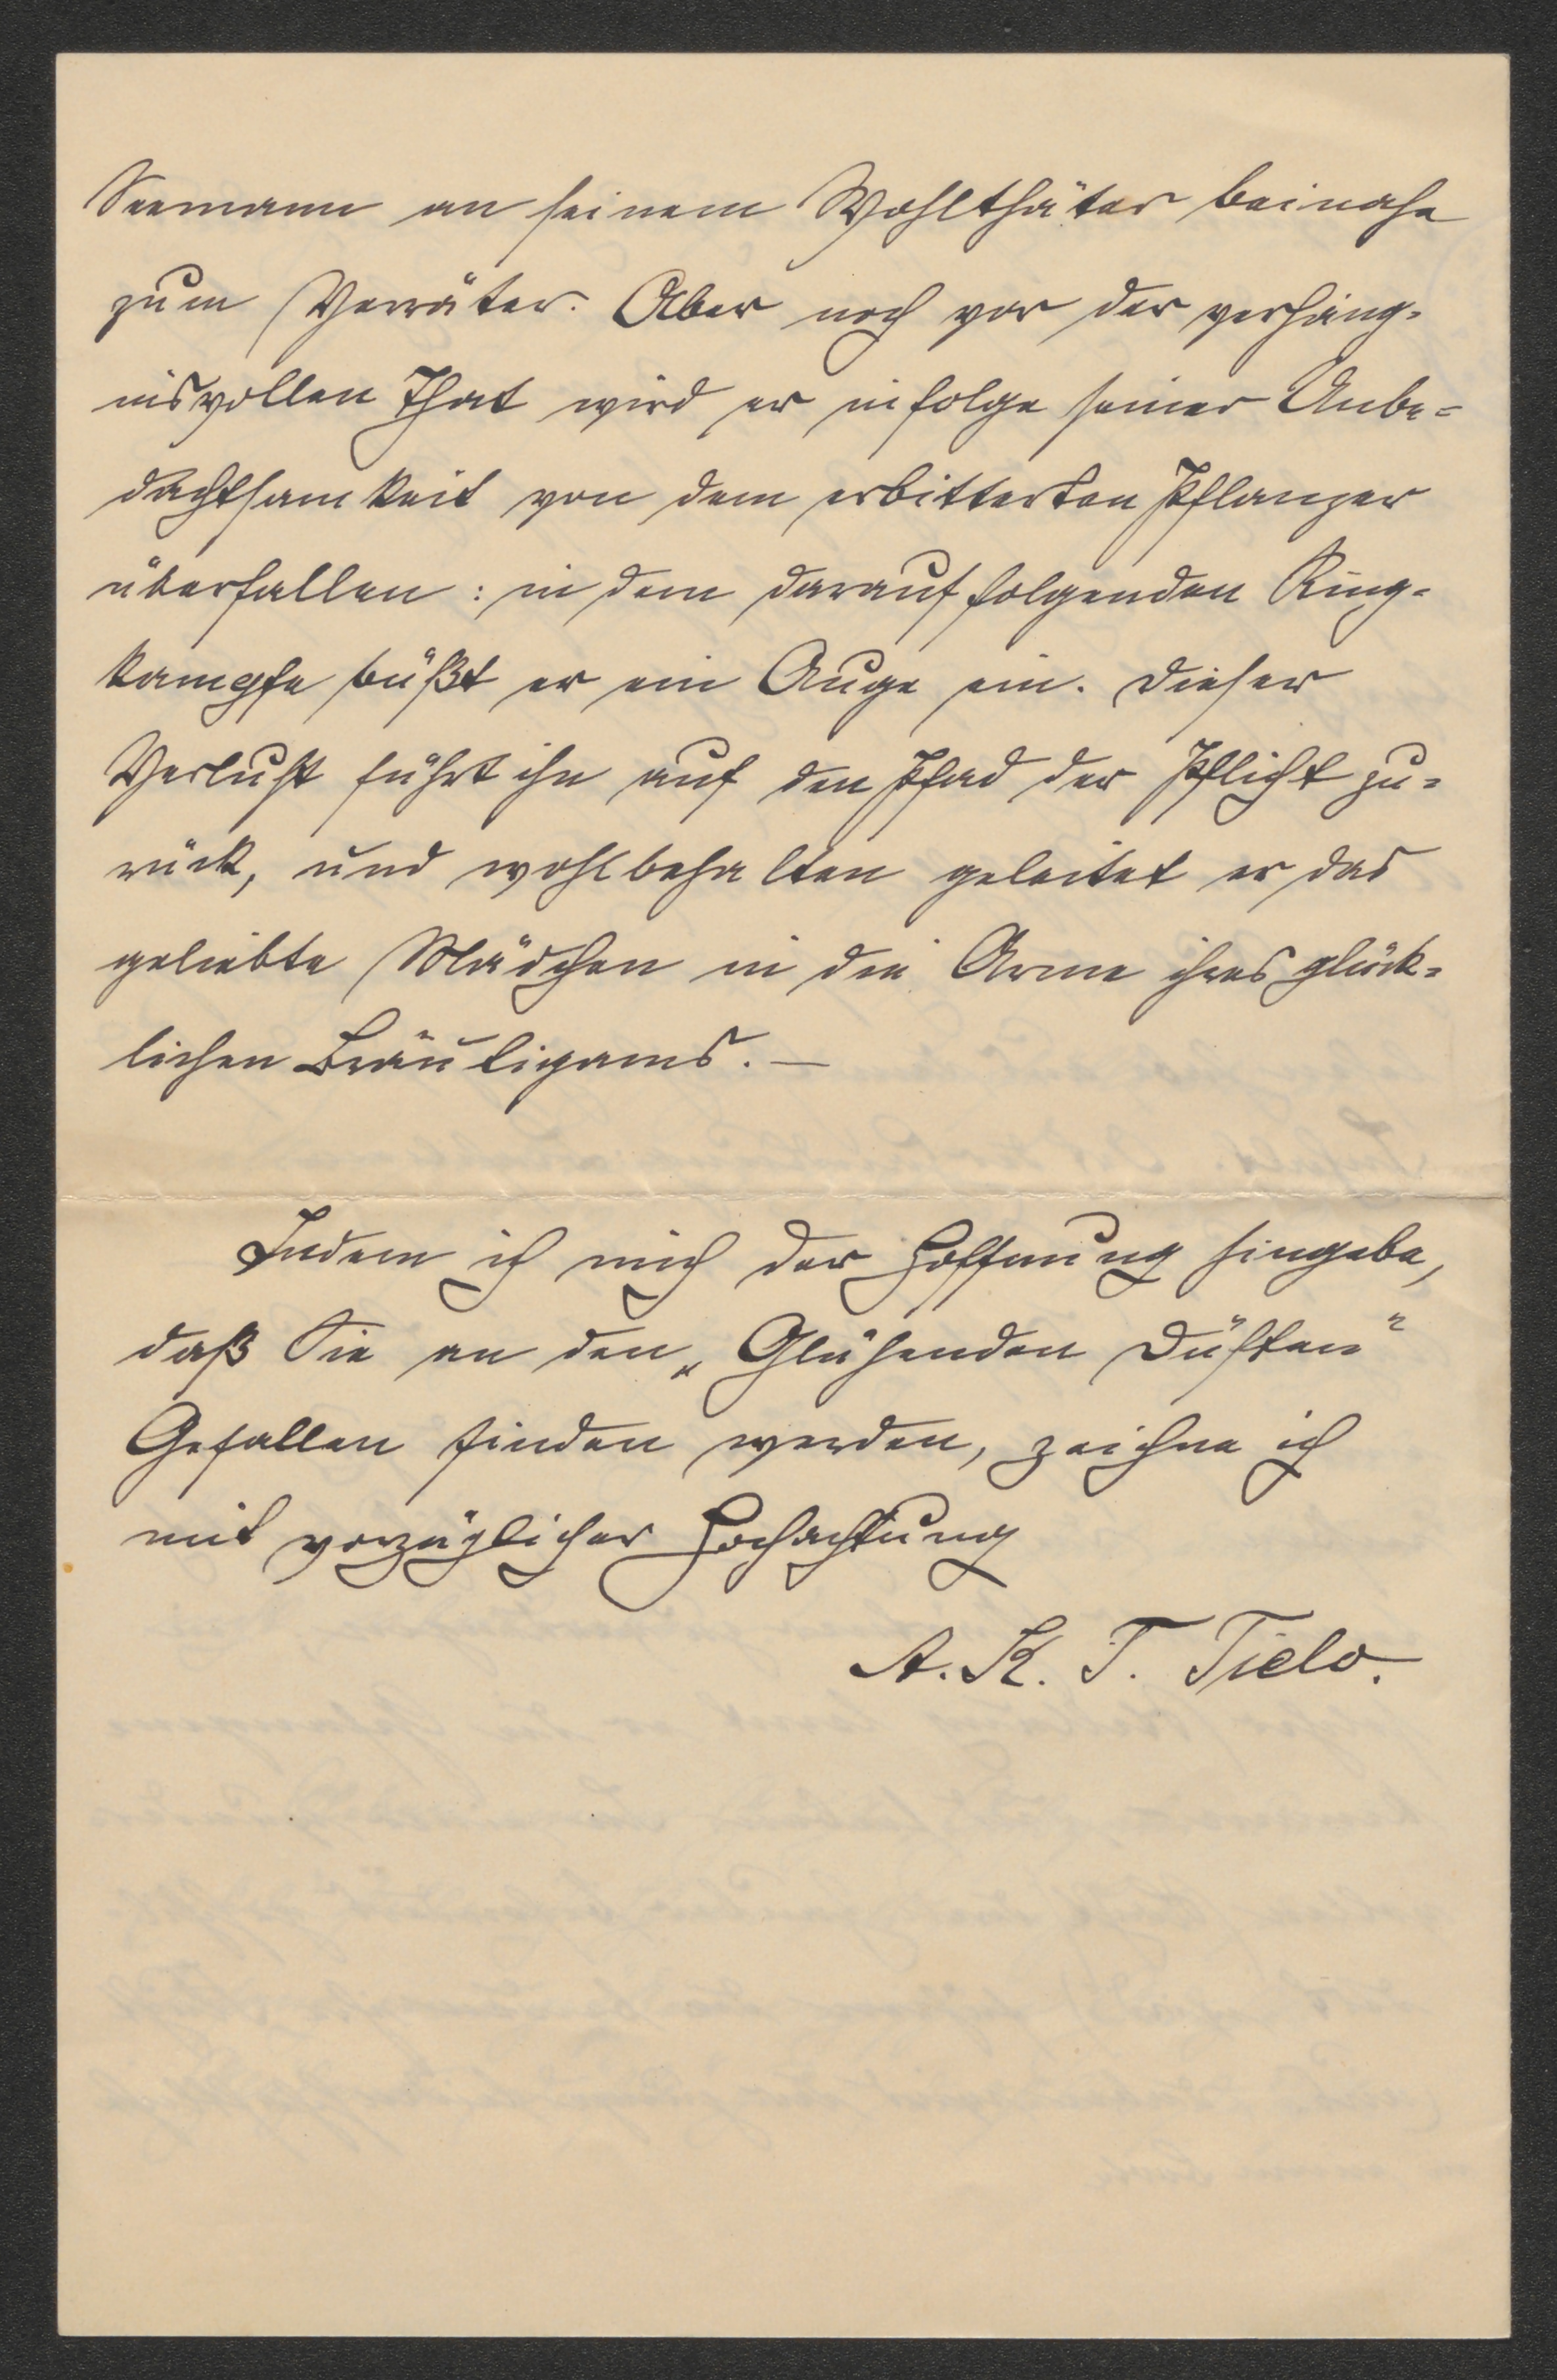 Seemann an seinem Wohlthäter beinahe
zum Verräter. Aber noch vor der verhäng-
nisvollen That wird er infolge seiner Unbe-
dachtsamkeit von dem erbitterten Pflanzer
überfallen: in dem darauf folgenden Ring-
kampfe büßt er ein Auge ein. Dieser
Verlust führt ihn auf den Pfad der Pflicht zu-
rück, und wohlbehalten geleitet er das
geliebte Mädchen in die Arme ihres glück-
lichen Bräutigams. —
Indem ich mich der Hoffnung hingebe,
daß Sie an den „Glühenden Düften“
Gefallen finden werden, zeichne ich
mit vorzüglicher Hochachtung
A. K. T. Tielo.